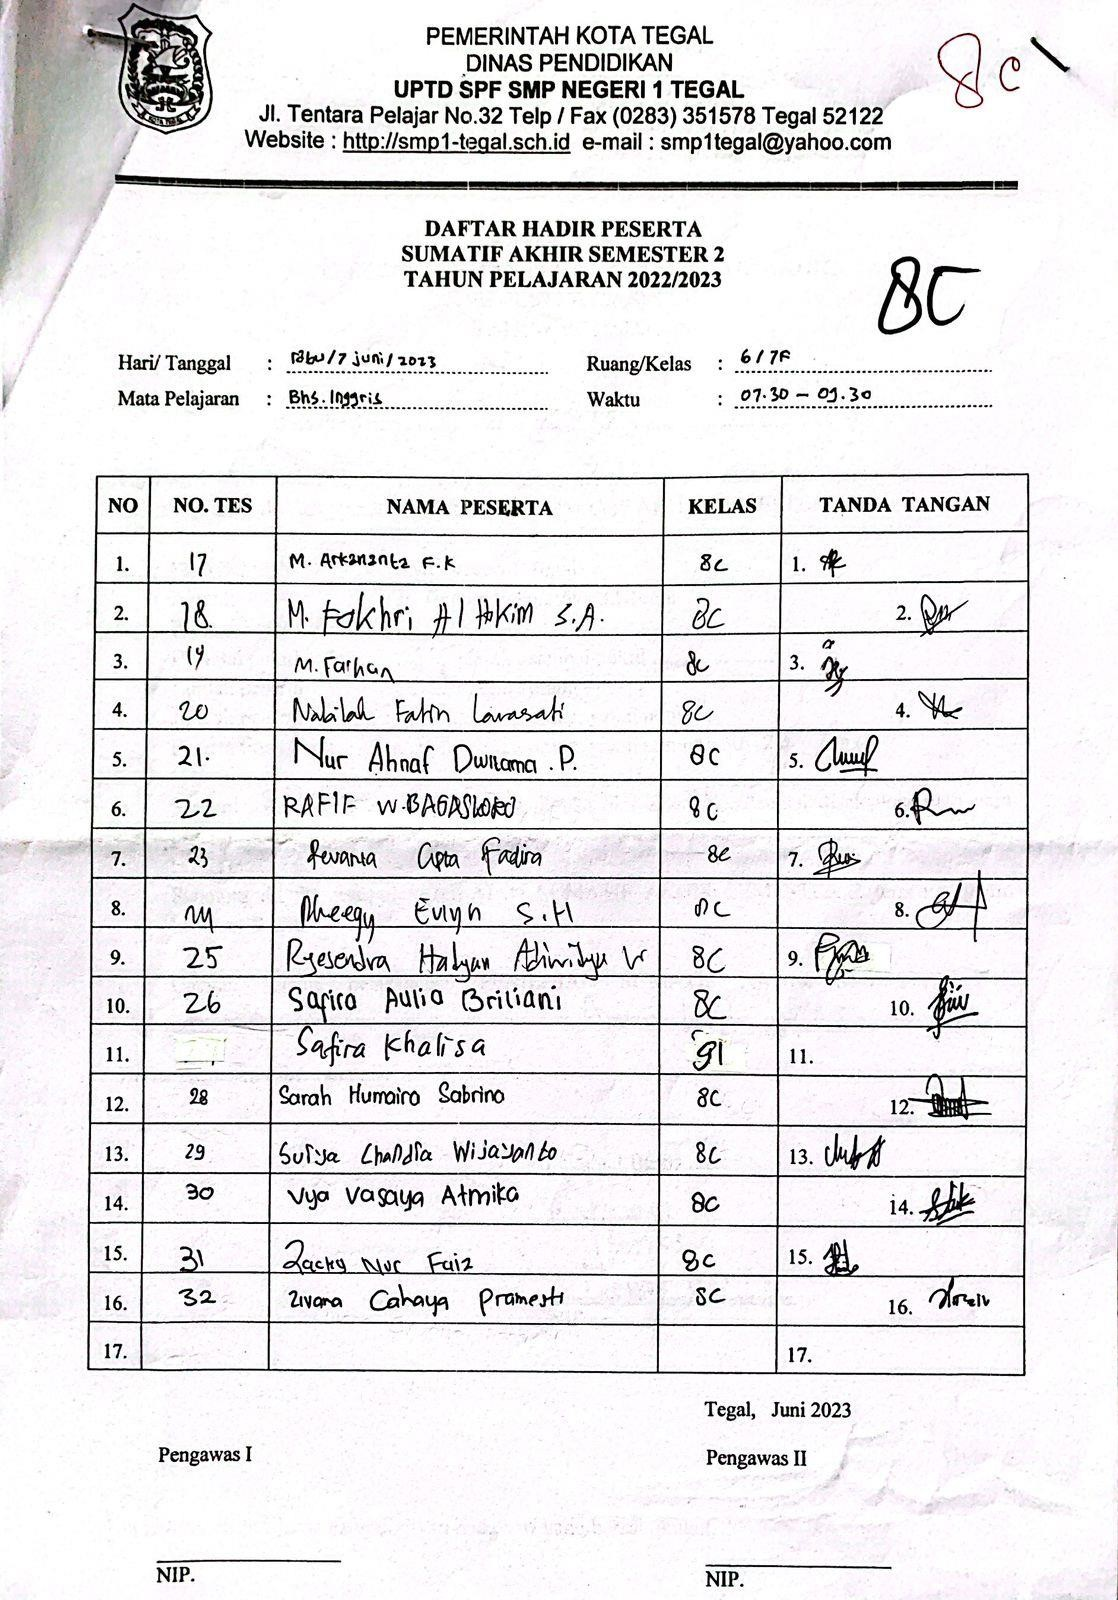 PEMERINTAH KOTA TEGAL
DINAS PENDIDIKAN
UPTD SPF SMP NEGERI 1 TEGAL
Jl. Tentara Pelajar No.32 Telp / Fax (0283) 351578 Tegal 52122
Website : http://smp1-tegal.sch.id e-mail : smp1tegal@yahoo.com
8C
DAFTAR HADIR PESERTA
SUMATIF AKHIR SEMESTER 2
TAHUN PELAJARAN 2022/2023
8C
Hari/ Tanggal : Rabu/7 juni/2023 Ruang/Kelas : 6/7F
Mata Pelajaran : Bhs.Inggris Waktu : 07.30 – 09.30
NO NO. TES NAMA PESERTA KELAS TANDA TANGAN
1. 17 M. Arkananta F.K 8C 1.
2. 18. M. Fakhri Al Hakim S.A. 8C 2.
3. 19 M. Farhan 8C 3.
4. 20 Nabilah Fatin Larasati 8C 4.
5. 21. Nur Ahnaf Dwitama .P. 8C 5.
6. 22 RAFIF W.BAGASKORO 8C 6.
7. 23 Revania Cipta Fadira 8C 7.
8. 24 Rheegy Evlyn S.H 8C 8.
9. 25 Ryesendra Halyan 8C 9.
10. 26 Safira Aulia Briliani 8C 10.
11. Safira Khalisa 11.
12. 28 Sarah Humaira Sabrina 8C 12.
13. 29 Surya Chandra Wijayanto 8C 13.
14. 30 Vya Vasaya Atmika 8C 14.
15. 31 Zacky Nur Faiz 8C 15.
16. 32 Zivana Cahaya Pramesti 8C 16.
17. 17.
Tegal, Juni 2023
Pengawas I Pengawas II
NIP. NIP.